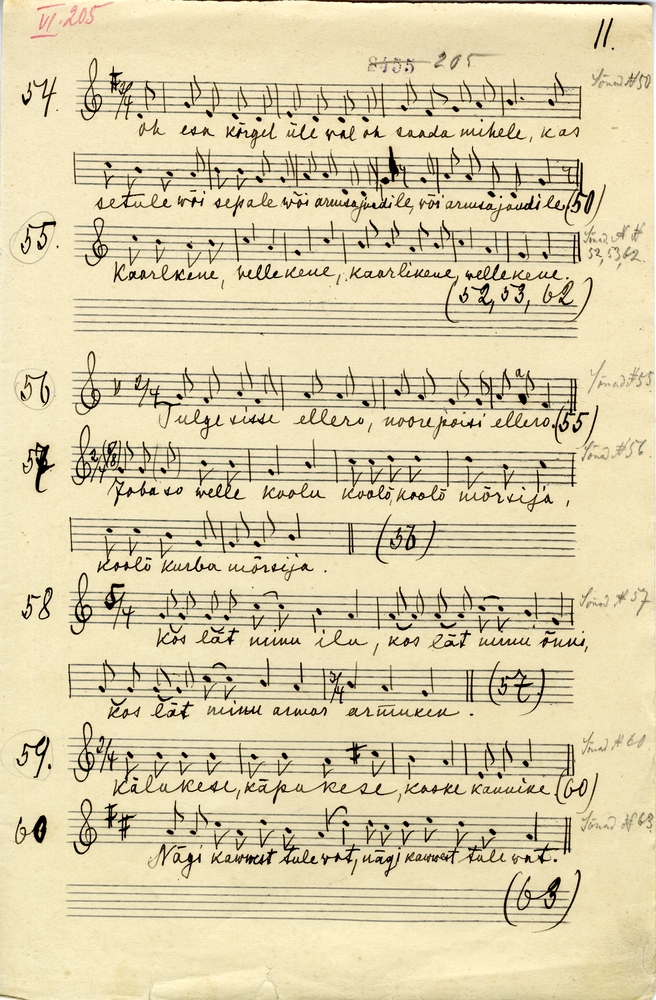 VI. 205
11.
8455 205
54. 3/4 Sõnad № 50
oh esa kõrgel üle wal oh saada mihele, kas
setule wõi sepale wõi armsajandile, wõi armsajandile. (50)
55. Sõnad № № 52, 53, 62
Kaarlkene, wellekene, kaarlikene, wellekene.
(52, 53, 62)
56 2/4 Sõnad № 55
Tulge sisse ellero, noore poisi ellero. (55)
57 Sõnad № 56.
Joba so welle koolu koolõ, koolõ mõrsija,
(56)
koolõ kurba mõrsija.
58 5/4 Sõnad № 57
kos lät minu ilu, kos lät minu õnni,
3/4 (57)
kos lät minu armas armuken.
59. 2/4 Sõnad № 60
Kälukese, käpukese, kooke kannike (60)
60 Sõnad № 63
Nägi kawwest tulewat, nägi kawwest tulewat.
(63)